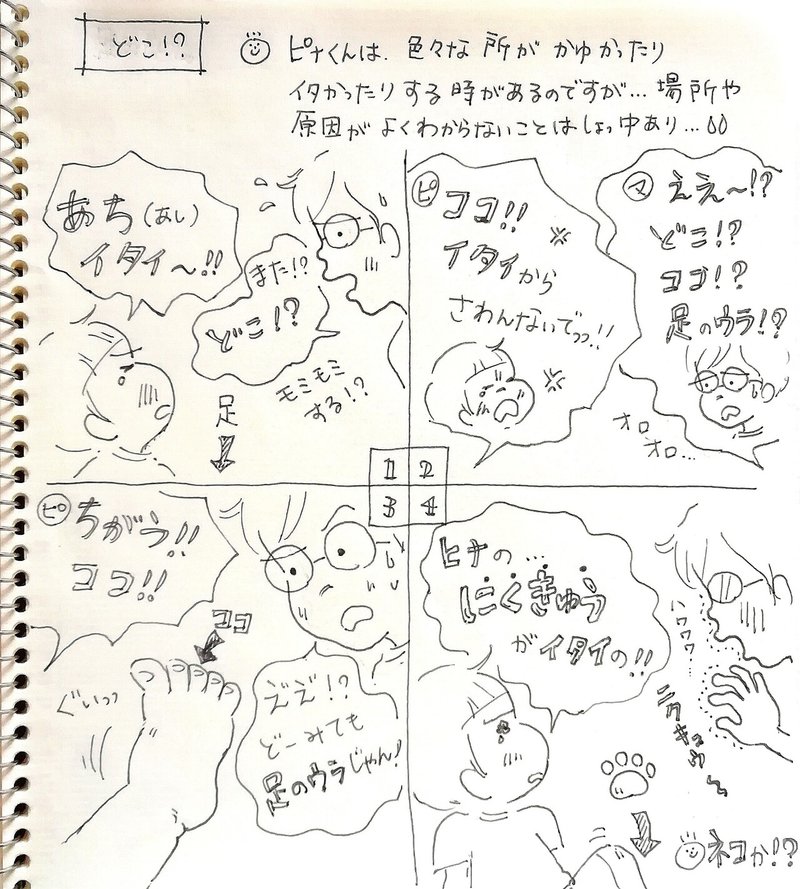 どこ!?
ピナくんは、色々な所がかゆかったり
イタかったりする時があるのですが…場所や
原因がよくわからないことはしょっ中あり…
あち(あし)
イタイ〜!!
また!?
どこ!?
モミモミ
する!?
足
1
ピ
ココ!!
イタイから
さわんないでっっ!!
マ
ええ〜!?
どこ!?
ココ!?
足のウラ!?
オロ
オロ…
2
ピ
ちがう!!
ココ!!
ココ
ぐいっっ
ええ!?
どーみても
足のウラじゃん!
3
ヒナの…
にくきゅう
がイタイの!!
ハワワワ
ニクキュウ〜
ネコか!?
4